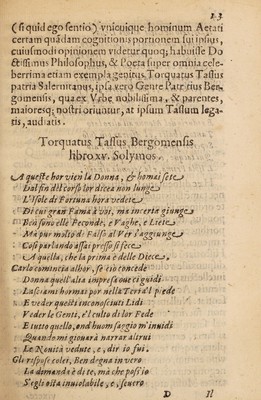 13
(si quid ego sentio) vnicuique hominum Aetati
certam quãdam cognitionis portionem sui ipsus,
cuiusmodi opinionem videtur quoq; habuisse Do
ctissimus Philosophus, & Poeta super omnia cele-
berrima etiam exempla genitus Torquatus Tassus
patria Salernitanus, ipsa vero Gente Patritius Ber-
gomensis, qua ex Vrbe nobilissima, & parentes,
maioresq; nostri oriũtur, at ipsum Tassum lega-
tis, audiatis.
Torquatus Tassus Bergomensis
libro xv. Solymos.
A queste hor vien la Donna, & homai sete
Dal fin del corso lor dicea non lunge
L'Isole di Fortuna hora vedete
Di cui gran Fama à voi, ma incerta giunge
Ben sono elle Feconde, e Vaghe, e Liete
Ma pur molto di Falso al Ver s'aggiunge
Cosi parlando assai presso si fece
A quella, che la prima è delle Diece.
Carlo comincia alhor, se ciò concede
Donna quell'alta impresa oue ci guidi
Lasciami homai por nella Terra il piede
E veder questi inconosciuti Lidi
Veder le Genti, e'l culto di lor Fede
E tutto quello, ond'huom saggio m'inuidi
Quando mi giouarà narrar altrui
Le Nouità vedute, e, dir io fui.
Gli rispose colei, Ben degna in vero
La domanda è di te, ma che poss'io
S'egli osta inuiolabile, e, seuero
D Il